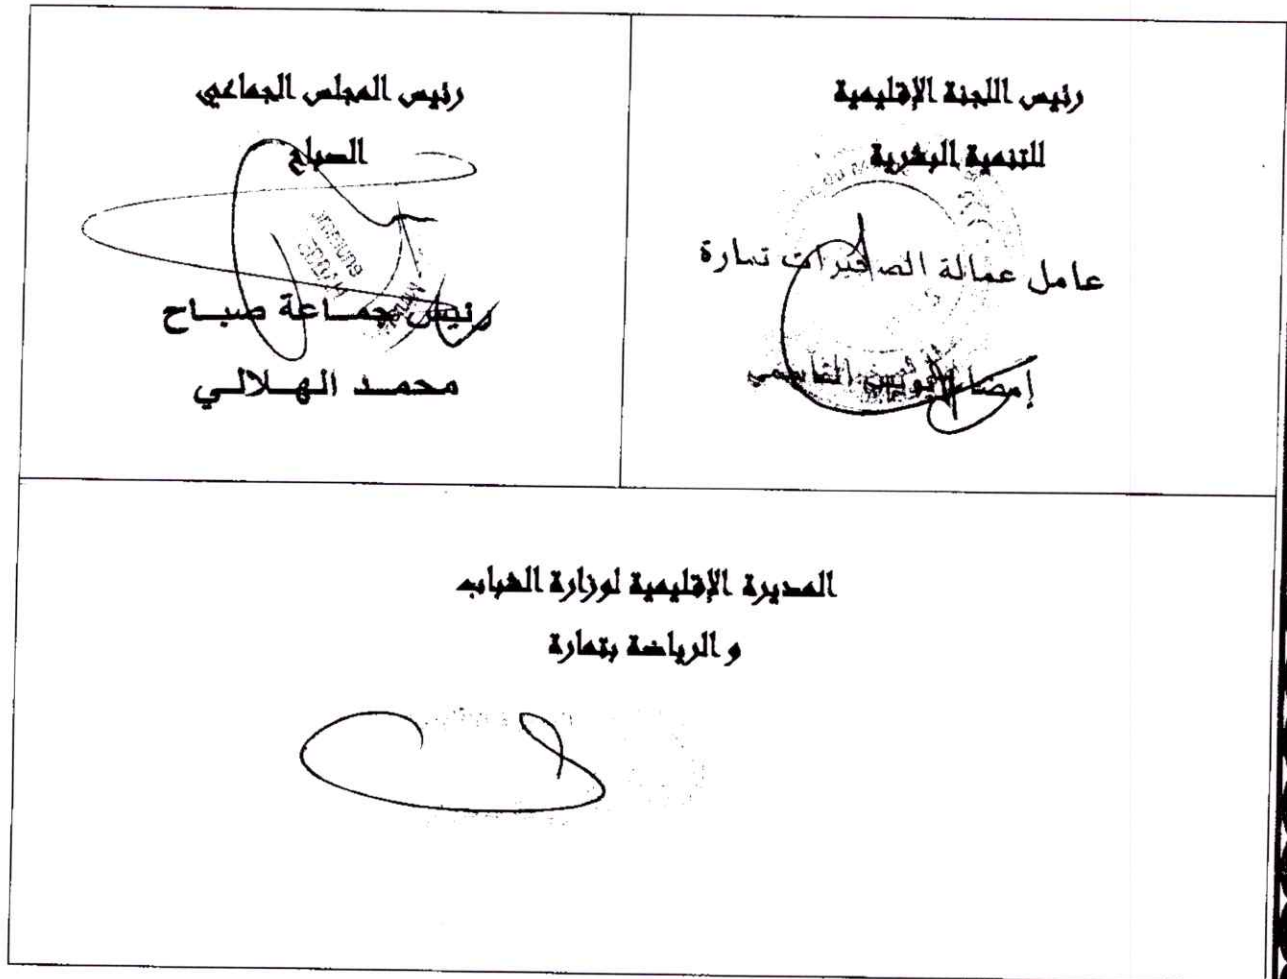 رئيس اللجنة الإقليمية
للتنمية البشرية
عامل عمالة الصخيرات تمارة
إمضاء يونس القاسمي
رئيس المجلس الجماعي
الصباح
رئيس جماعة صباح
محمد الهلالي
المديرة الإقليمية لوزارة الشباب
و الرياضة بتمارة